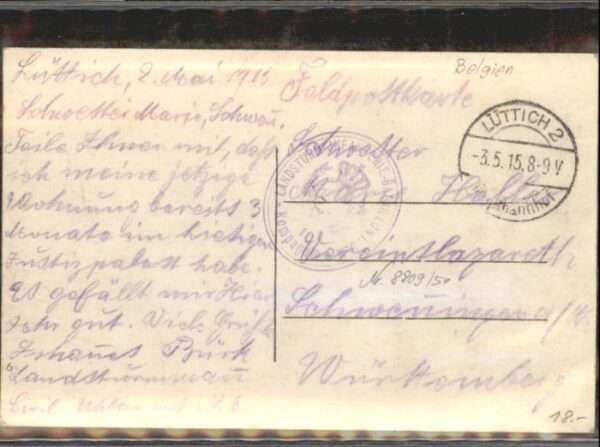 Lüttich, 2. Mai 1915
Schwester Marie, Schwen.
Teile Ihnen mit, daß
ich meine jetzige
Wohnung bereits 3
Monate im hiesigen
Justizpalast habe.
Es gefällt mir Hier
sehr gut. Viele Grüße
Johannes Bürk
Landsturmmann
Belgien
Feldpostkarte
LÜTTICH 2
-3.5.15.8-9V
bahnhof
LANDSTURM
Schwester
Vereinslazarett
Nr. 8809/50
Schwenningen a/N.
Württemberg
18.-